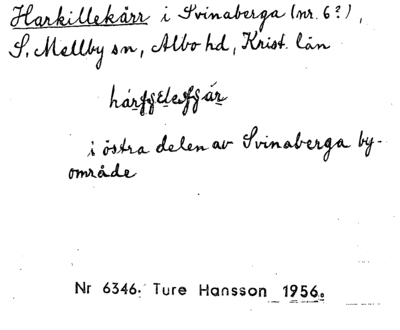 Harkillekärr i Svinaberga (nr. 6?),
S. Mellby sn, Albo hd, Krist. län
i östra delen av Svinaberga by-
område
Nr 6346. Ture Hansson 1956.